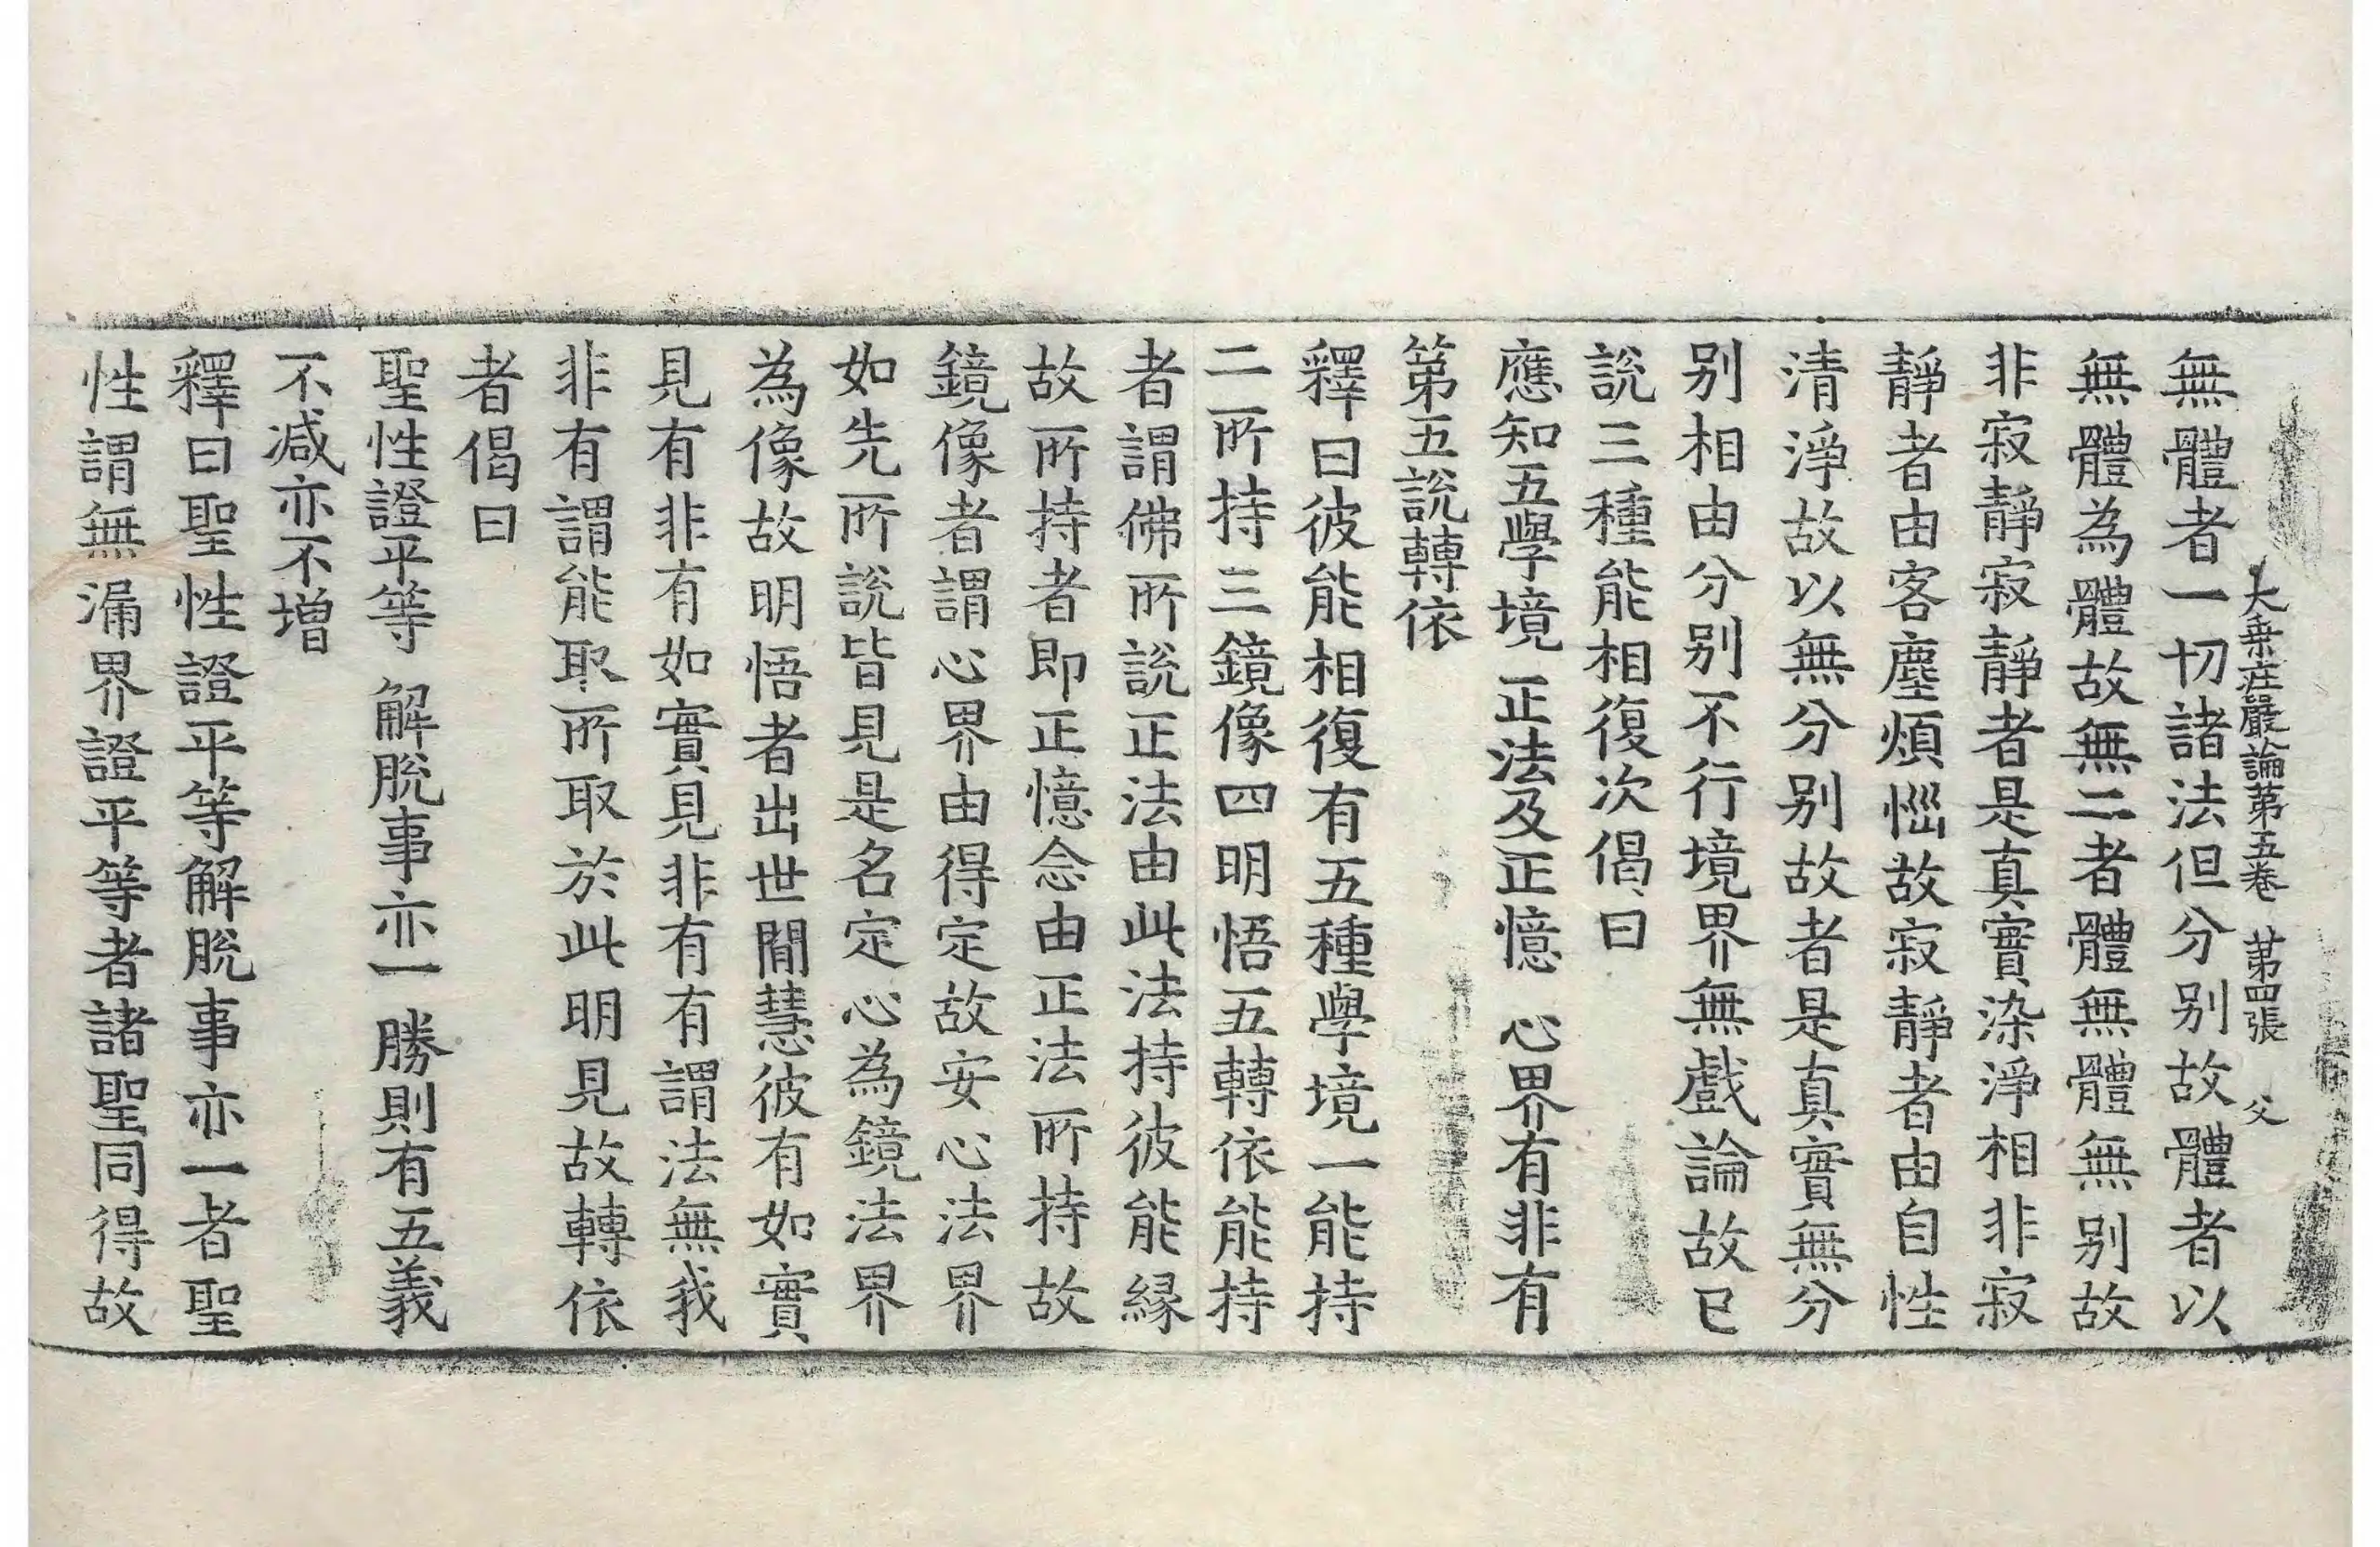 大乗荘嚴論第五卷 第四張 父
無體者一切諸法但分别故體者以
無體為體故無二者體無體無别故
非寂靜寂靜者是真實染淨相非寂
靜者由客塵煩惱故寂靜者由自性
清淨故以無分别故者是真實無分
别相由分别不行境界無戲論故已
說三種能相復次偈曰
應知五學境 正法及正憶 心界有非有
第五說轉依
釋曰彼能相復有五種學境一能持
二所持三鏡像四明悟五轉依能持
者謂佛所說正法由此法持彼能縁
故所持者即正憶念由正法所持故
鏡像者謂心界由得定故安心法界
如先所說皆見是名定心為鏡法界
為像故明悟者出世間慧彼有如實
見有非有如實見非有有謂法無我
非有謂能取所取於此明見故轉依
者偈曰
聖性證平等 解脫事亦一 勝則有五義
不减亦不增
釋曰聖性證平等解脫事亦一者聖
性謂無漏界證平等者諸聖同得故